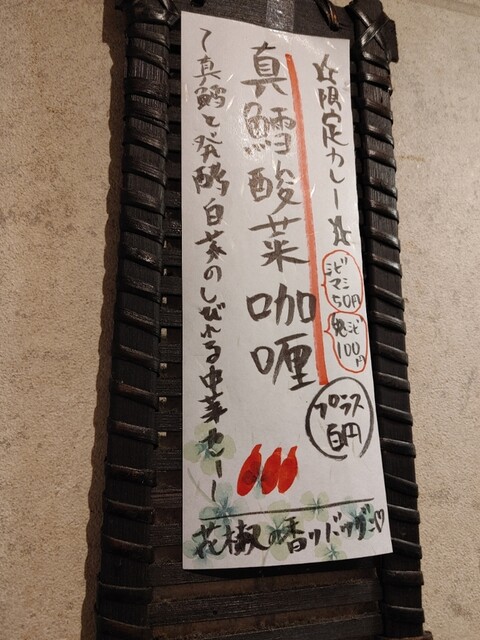 ☆限定カレー☆
シビマシ
50円
鬼シビ
100円
プラス
百円
真鱈酸菜咖喱
〜真鱈と発酵白菜のしびれる中華カレー
花椒の香りドゥグン♡